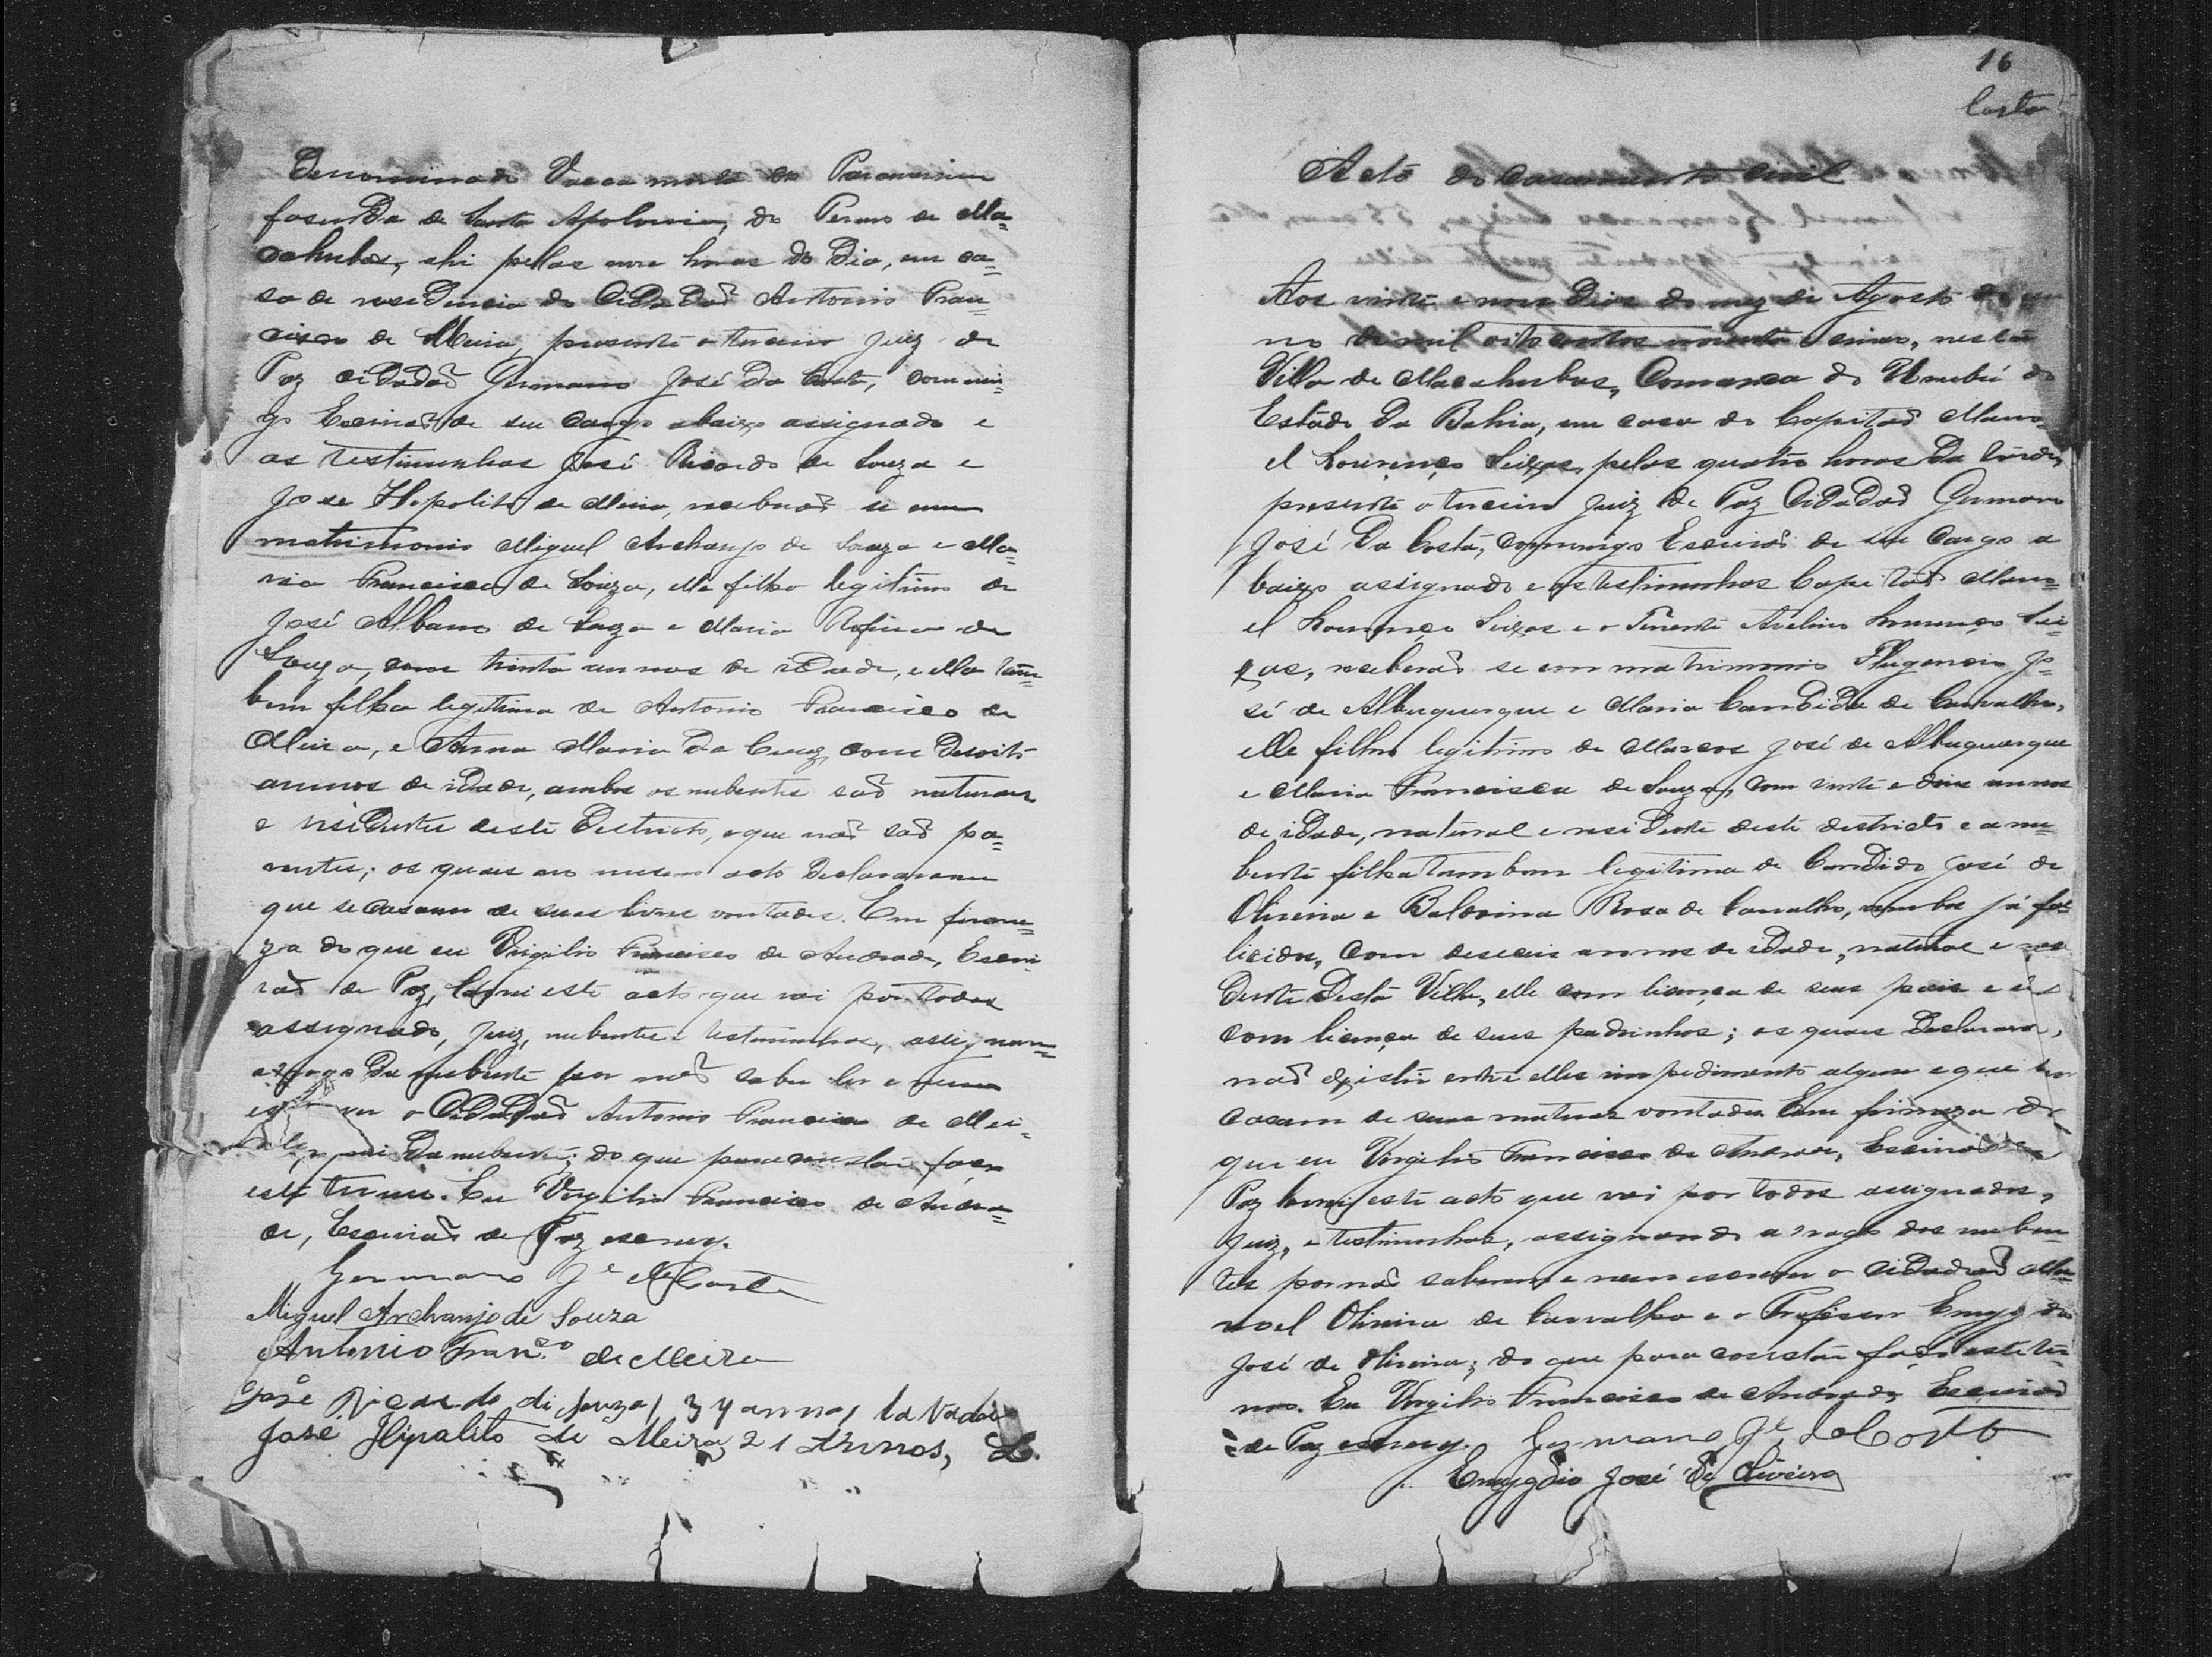 Denominado Vacca morta do Paramirim
fasenda de Santa Apolonia, do Termo de Ma=
cahubas, ahi pellas nove horas do Dia, em ca=
sa de residencia do Cidadaõ Antonio Fran=
cisco de Meira, presente o terceiro Juiz de
Paz cidadaõ Germano José da Costa, commi=
go Escrivaõ de seu Cargo abaixo assignado e
as testimunhas José Ricardo de Souza e
Jose Hipolito de Meira, receberaõ se em
matrimonio Miguel Archanjo de Souza e Ma=
ria Francisca de Souza, elle filho legitimo de
José Albano de Souza e Maria Rofina de
Souza, com trinta annos de idade, e ella tam=
bem filha legitima de Antonio Francisco de
Meira, e Anna Maria da Cruz, com desoito
annos de idade, ambos os nubentes saõ naturaes
e residentes deste Destricto, e que naõ saõ pa=
rentes; os quaes no mesmo acto declararam
que se casam de suas livres vontades. Em firme=
za do que eu Virgilio Francisco de Andrade, Escri=
vaõ de Paz, lavrei este acto que vai por todos
assignado, Juiz, nubentes e testimunhas, assignan=
a rogo da nubente por naõ saber ler e nem
o Cidadaõ Antonio Francisco de Mei=
pai da nubente; do que para constar faço
este termo. Eu Virgilio Francisco de Andra=
de, Escrivaõ de Paz escrevy.
Germano Jé da Costa
Miguel Archanjo de Souza
Antonio Franco de Meira
José Ricardo di Souza, 34 annos, lavrador
José Hipolito de Meira 21 Annos, L.
16
Costa
Acto do casamento civil
Aos vinte e nove Dias do mez de Agosto
no de mil oitocentos noventa e cinco, nesta
Villa de Macahubas, Comarca do Urubú do
Estado da Bahia, em casa do Capitaõ Mano=
el Lourenço Seixas, pelas quatro horas da tarde,
presente o terceiro Juiz de Paz Cidadaõ Germano
José da Costa, commigo Escrivaõ de seu Cargo a
baixo assignado e as testimunhas Capitaõ Mano=
el Lourenço Seixas e o Tenente Avelino Lourenço Sei
xas, receberaõ se em matrimonio Flugencio Jo=
sé de Albuquerque e Maria Candida de Carvalho,
elle filho legitimo de Marcos José de Albuquerque
e Maria Francisca de Souza, com vinte e dois annos
de idade, natural e residente deste destricto e a nu=
bente filha tambem legitima de Candido José de
Oliveira e Balbina Rosa de Carvalho, ambos já fal=
licidos, com deseseis annos de idade, natural e resi
dente desta Villa, elle com licença de seus pais e ella
com licença de seus padrinhos; os quaes declararam,
naõ existir entre elles impedimento algum e que se
casam de suas mutuas vontades. Em firmeza do
que eu Virgilio Francisco de Andrade, Escrivaõ de
Paz lavrei este acto que vai por todos assignados,
Juiz, e testimunhas, assignando a rogo dos nuben
tes por naõ saberem e nem escrever o cidadaõ Ma=
noel Oliveira de Carvalho e o Professor Emygdio
José de Oliveira; do que para constar faço este ter
mo. Eu Virgilio Francisco de Andrade, Escrivaõ
=de Paz escrevy. Germano Jé da Costa
Emygdio José de Oliveira